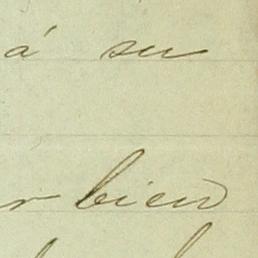 á su
r bien